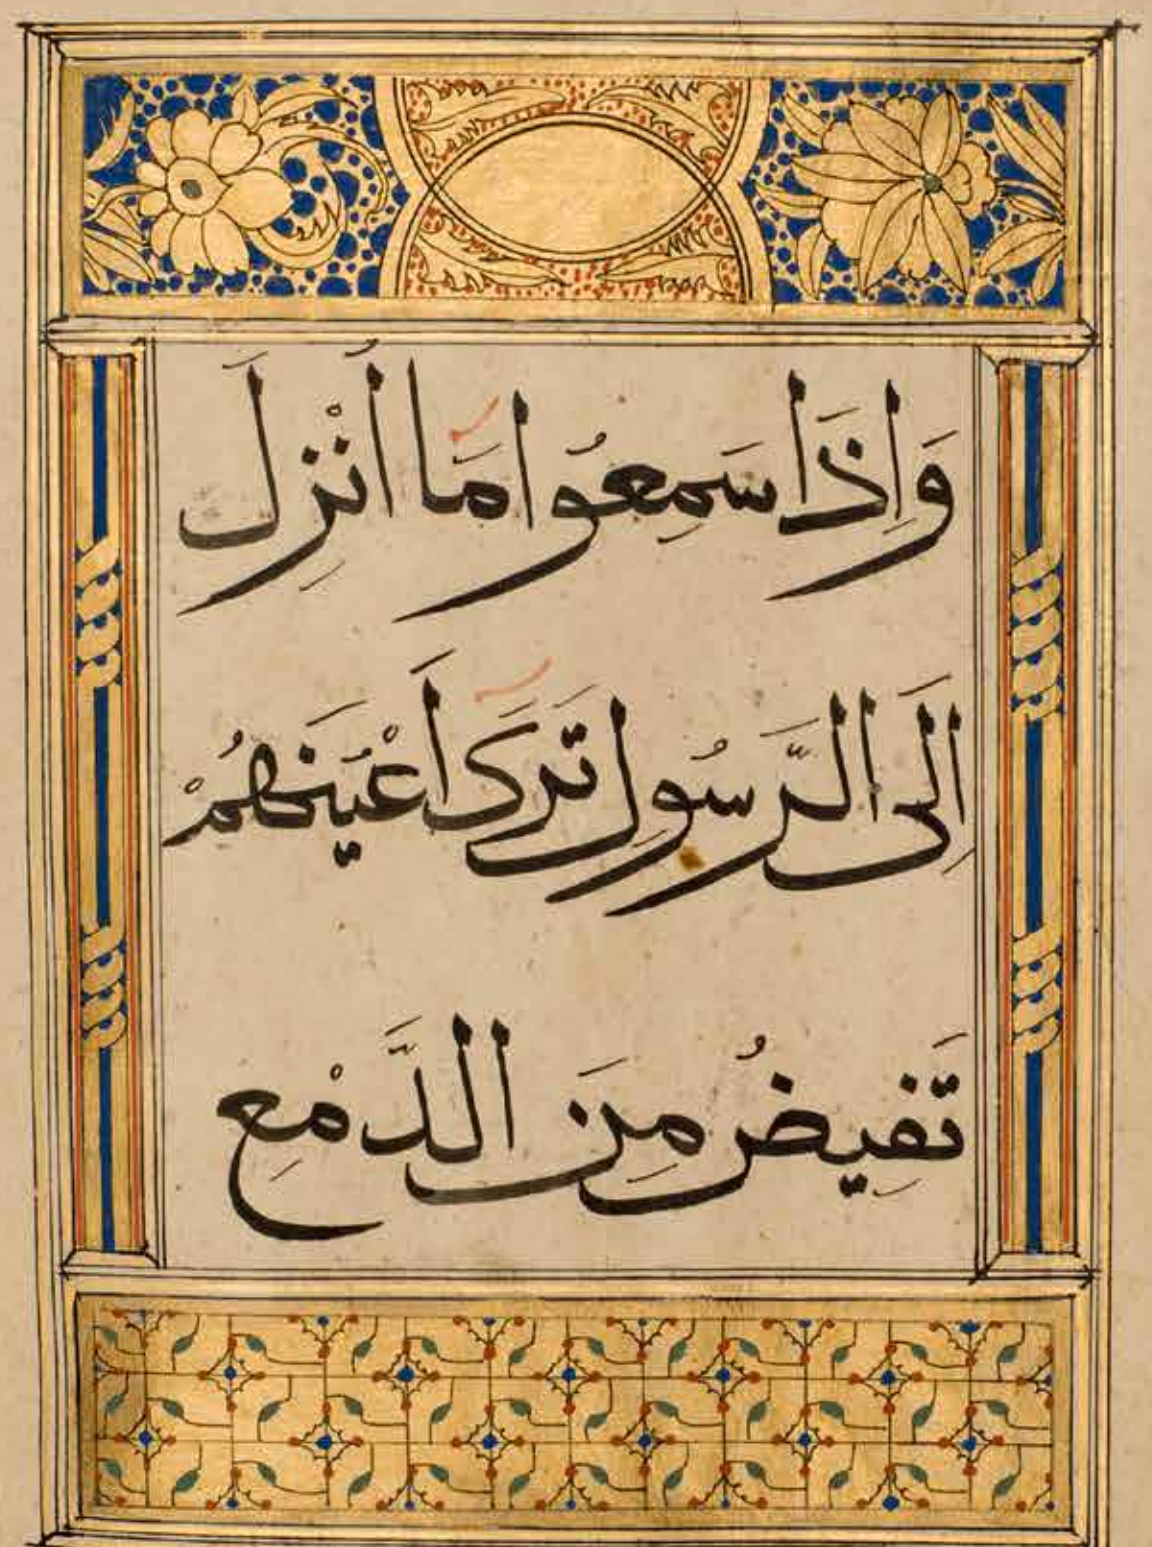 وَاِذَا سَمِعُوا مَا اُنْزِلَ
اِلَى الرَّسُولِ تَرَى اَعْيُنَهُمْ
تَفِيضُ مِنَ الدَّمْعِ